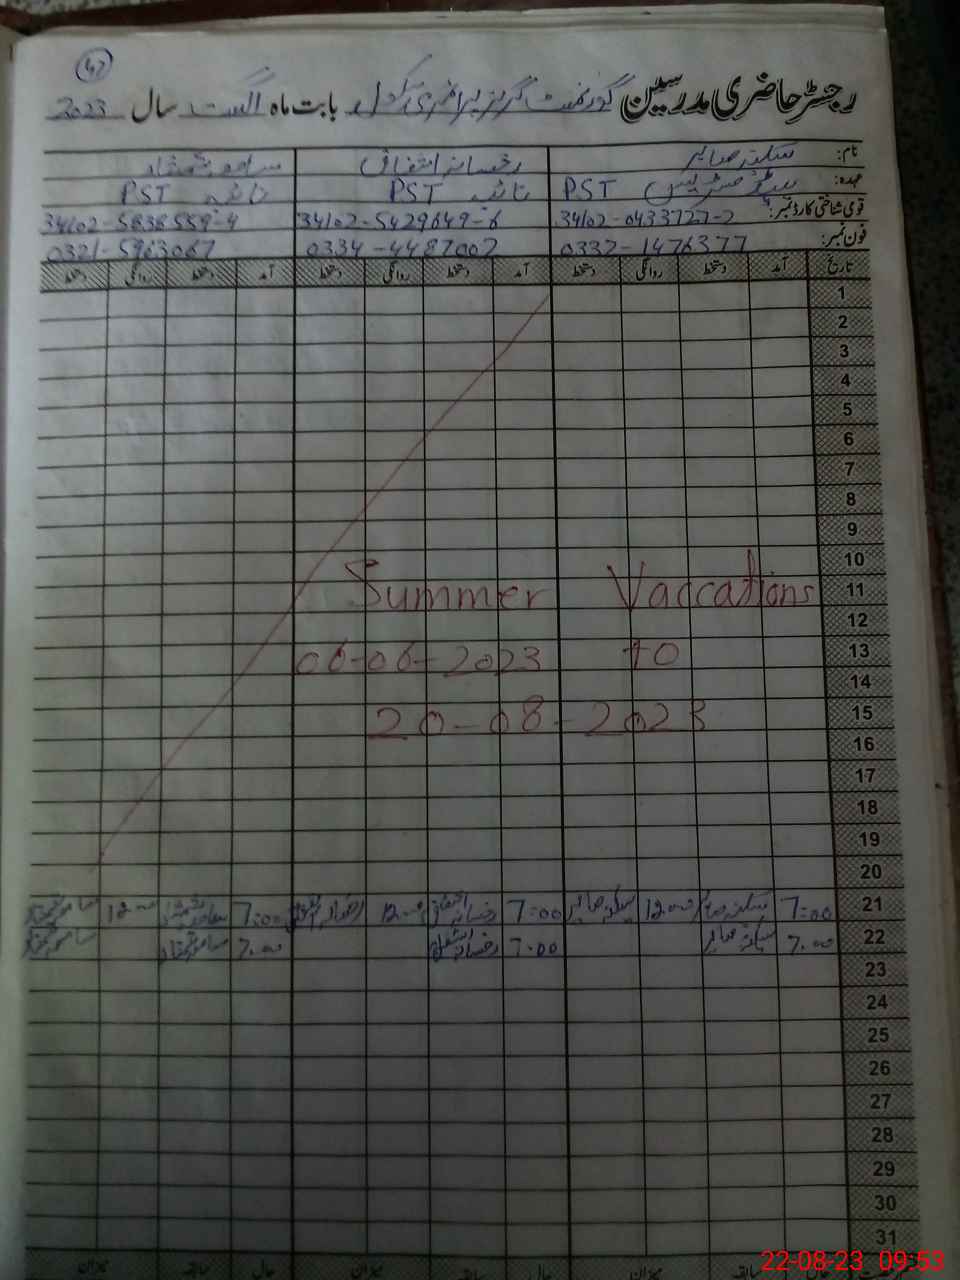 42
رجسٹر حاضری مدرسین گورنمنٹ گرلز پرائمری سکول بابت ماہ اگست سال 2023
نام: سکینہ صابر رخسانہ اشفاق
عہدہ: ہیڈ مسٹریس PST نائب PST نائب PST
قومی شناختی کارڈ نمبر: 34102-0433727-2 34102-5429649-6 34102-5838559-4
فون نمبر: 0332-1476377 0334-4487002 0321-5963067
تاریخ آمد دستخط روانگی دستخط آمد دستخط روانگی دستخط آمد دستخط روانگی دستخط
1
2
3
4
5
6
7
8
9
10
11 Summer Vaccations
12
13 06-06-2023 to
14
15 20-08-2023
16
17
18
19
20
21 7:00 سکینہ صابر 12:00 سکینہ صابر 7:00 رخسانہ اشفاق 12:00 رخسانہ اشفاق 7:00 12:00
22 7:00 سکینہ صابر 7:00 رخسانہ اشفاق 7:00
23
24
25
26
27
28
29
30
31
سابقہ حال میزان سابقہ حال میزان
22-08-23 09:53